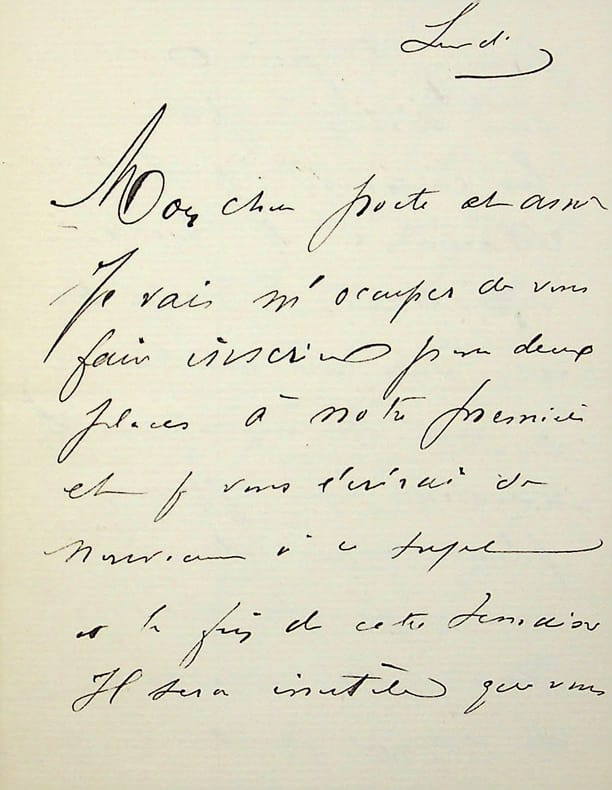 Lundi
Mon cher poete et ami
Je vais m'occuper de vous
faire inscrire pour deux
places à notre premiere
et je vous écrirai de
nouveau à ce sujet
à la fin de cette semaine
Il sera inutile que vous